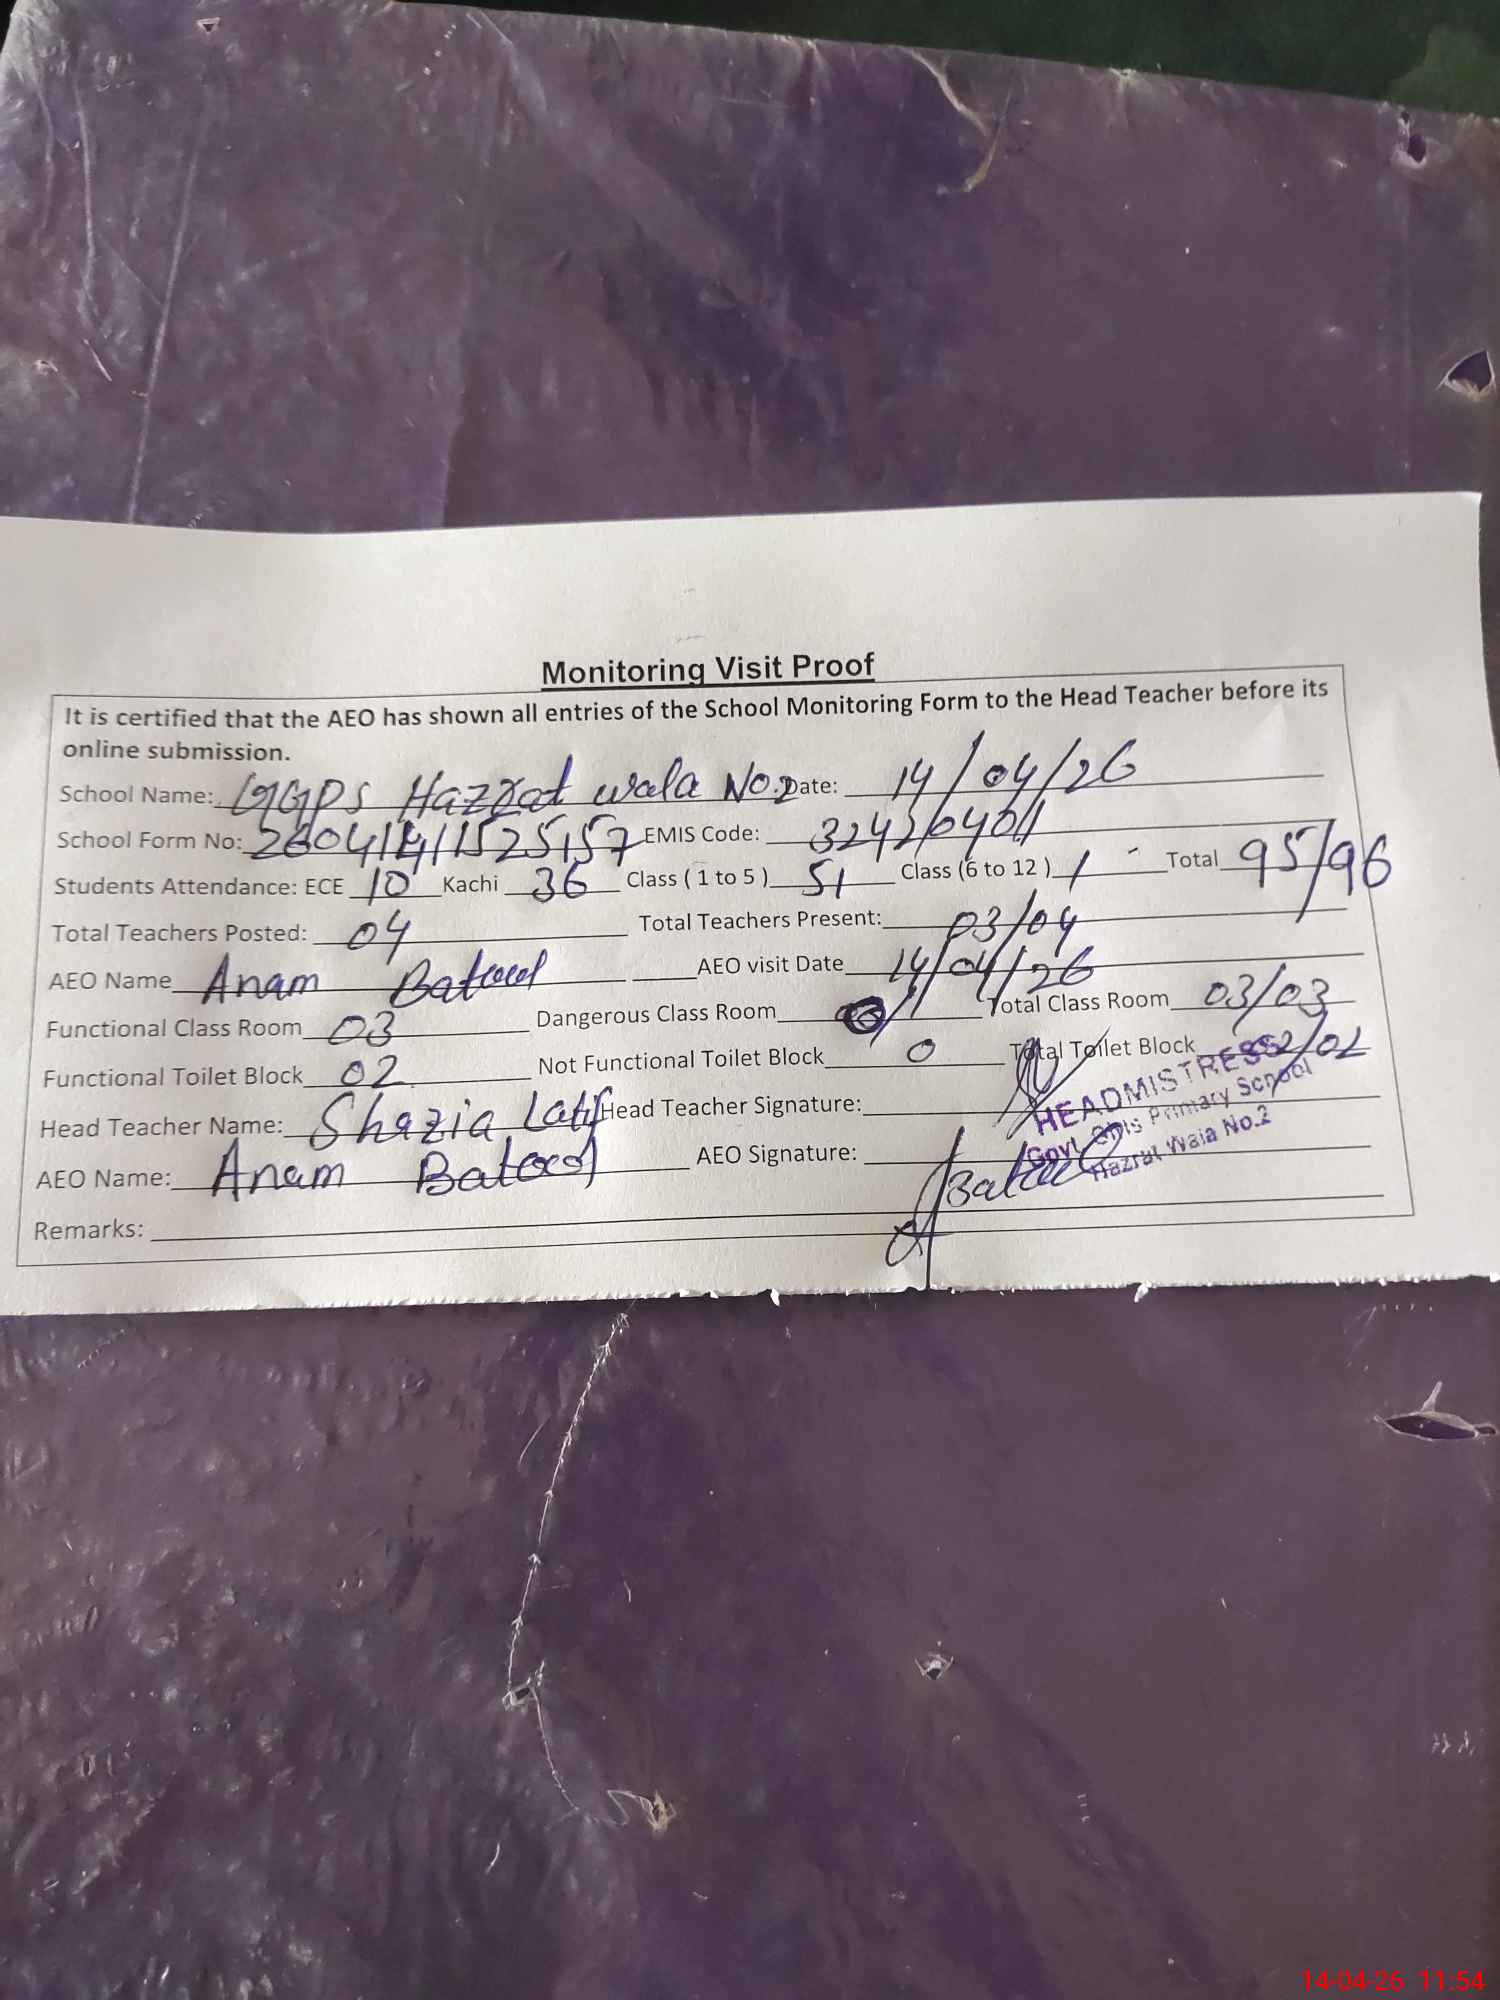 Monitoring Visit Proof
It is certified that the AEO has shown all entries of the School Monitoring Form to the Head Teacher before its
online submission.
School Name: GGPS Hazrat wala No.2 Date: 14/04/26
School Form No: EMIS Code:
Students Attendance: ECE 10 Kachi 36 Class ( 1 to 5 ) 51 Class (6 to 12 ) / - Total 95/96
Total Teachers Posted: 04 Total Teachers Present: 03/04
AEO Name Anam Batool AEO visit Date 14/04/26
Functional Class Room 03 Dangerous Class Room Total Class Room 03/03
Functional Toilet Block 02 Not Functional Toilet Block 0 Total Toilet Block 02/02
Head Teacher Name: Shazia Latif Head Teacher Signature:
HEADMISTRESS
Govt. Girls Primary School
Hazrat Wala No.2
AEO Name: Anam Batool AEO Signature: Batool
Remarks:
14-04-26 11:54